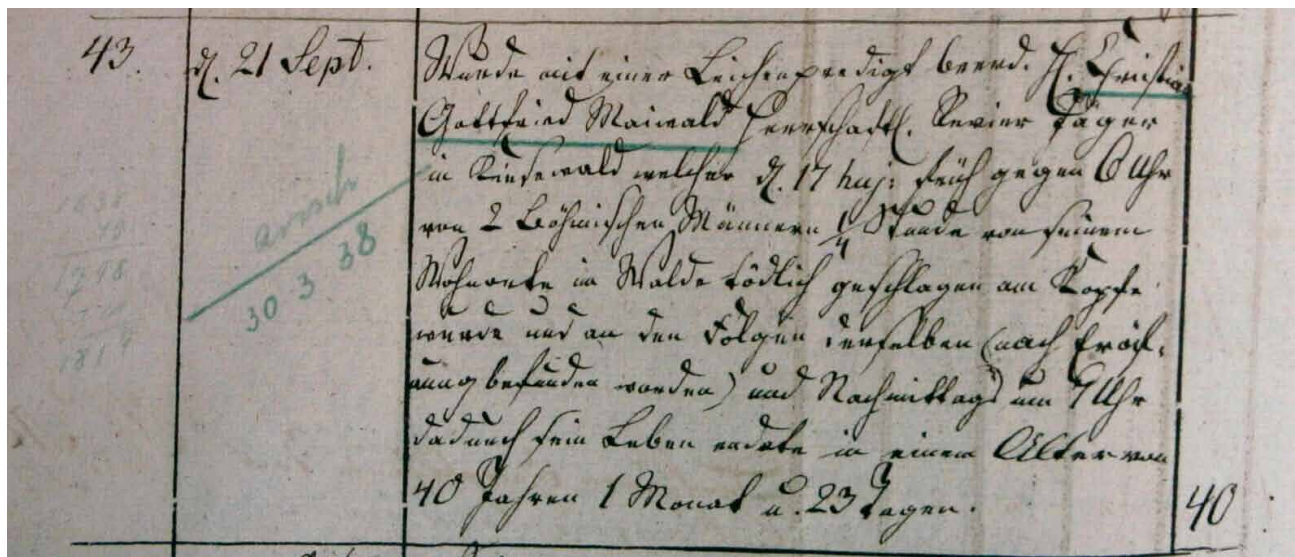 43.
d. 21 Sept.
Wurde mit einer Leichenpredigt beerd. H. Christian
Gottfried Maiwald herrschaftl. Revier Jäger
in Kiesewald welcher d. 17 huj: früh gegen 6 Uhr
von 2 Böhmischen Männern 1/4 Stunde von seinem
Wohnorte im Walde tödlich geschlagen am Kopfe
wurde und an den Folgen derselben (nach Eröf-
nung befunden worden) und Nachmittags um 7 Uhr
dadurch sein Leben endete in einem Alter von
40 Jahren 1 Monat u. 23 Tagen.
40
30 3 38